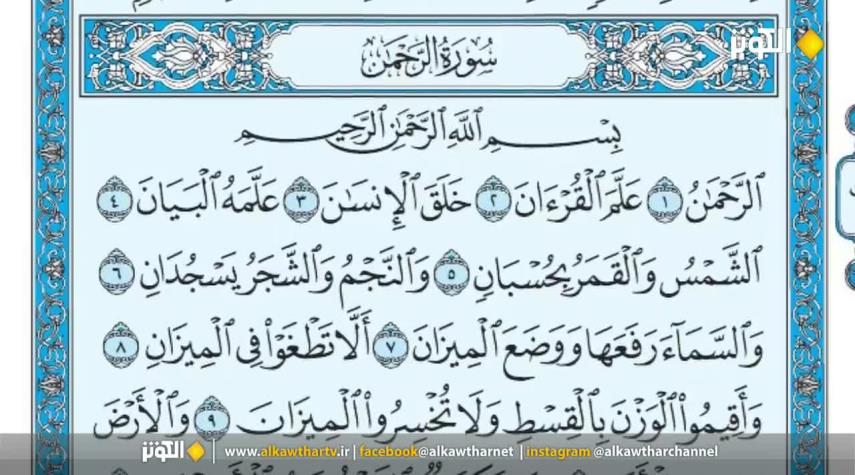 سُورَةُ الرَّحْمَٰن
الكوثر
بِسْمِ اللَّهِ الرَّحْمَٰنِ الرَّحِيمِ
الرَّحْمَٰنُ ١ عَلَّمَ الْقُرْءَانَ ٢ خَلَقَ الْإِنسَٰنَ ٣ عَلَّمَهُ الْبَيَانَ ٤
الشَّمْسُ وَالْقَمَرُ بِحُسْبَانٍ ٥ وَالنَّجْمُ وَالشَّجَرُ يَسْجُدَانِ ٦
وَالسَّمَآءَ رَفَعَهَا وَوَضَعَ الْمِيزَانَ ٧ أَلَّا تَطْغَوْا فِى الْمِيزَانِ ٨
وَأَقِيمُوا الْوَزْنَ بِالْقِسْطِ وَلَا تُخْسِرُوا الْمِيزَانَ ٩ وَالْأَرْضَ
الكوثر www.alkawthartv.ir | facebook@alkawtharnet | instagram @alkawtharchannel